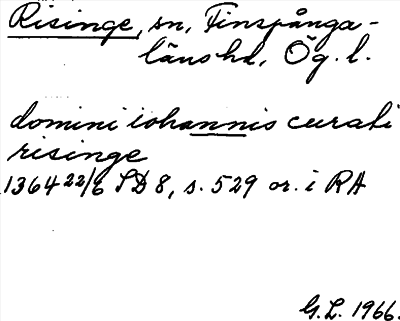 Risinge, sn, Finspånga-
länshd, Ög. l.
domini iohannis curati
risinge
1364 22/6 SD 8, s. 529 or. i RA
G.L. 1966.